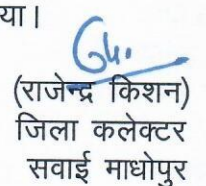 या।
(राजेन्द्र किशन)
जिला कलेक्टर
सवाई माधोपुर